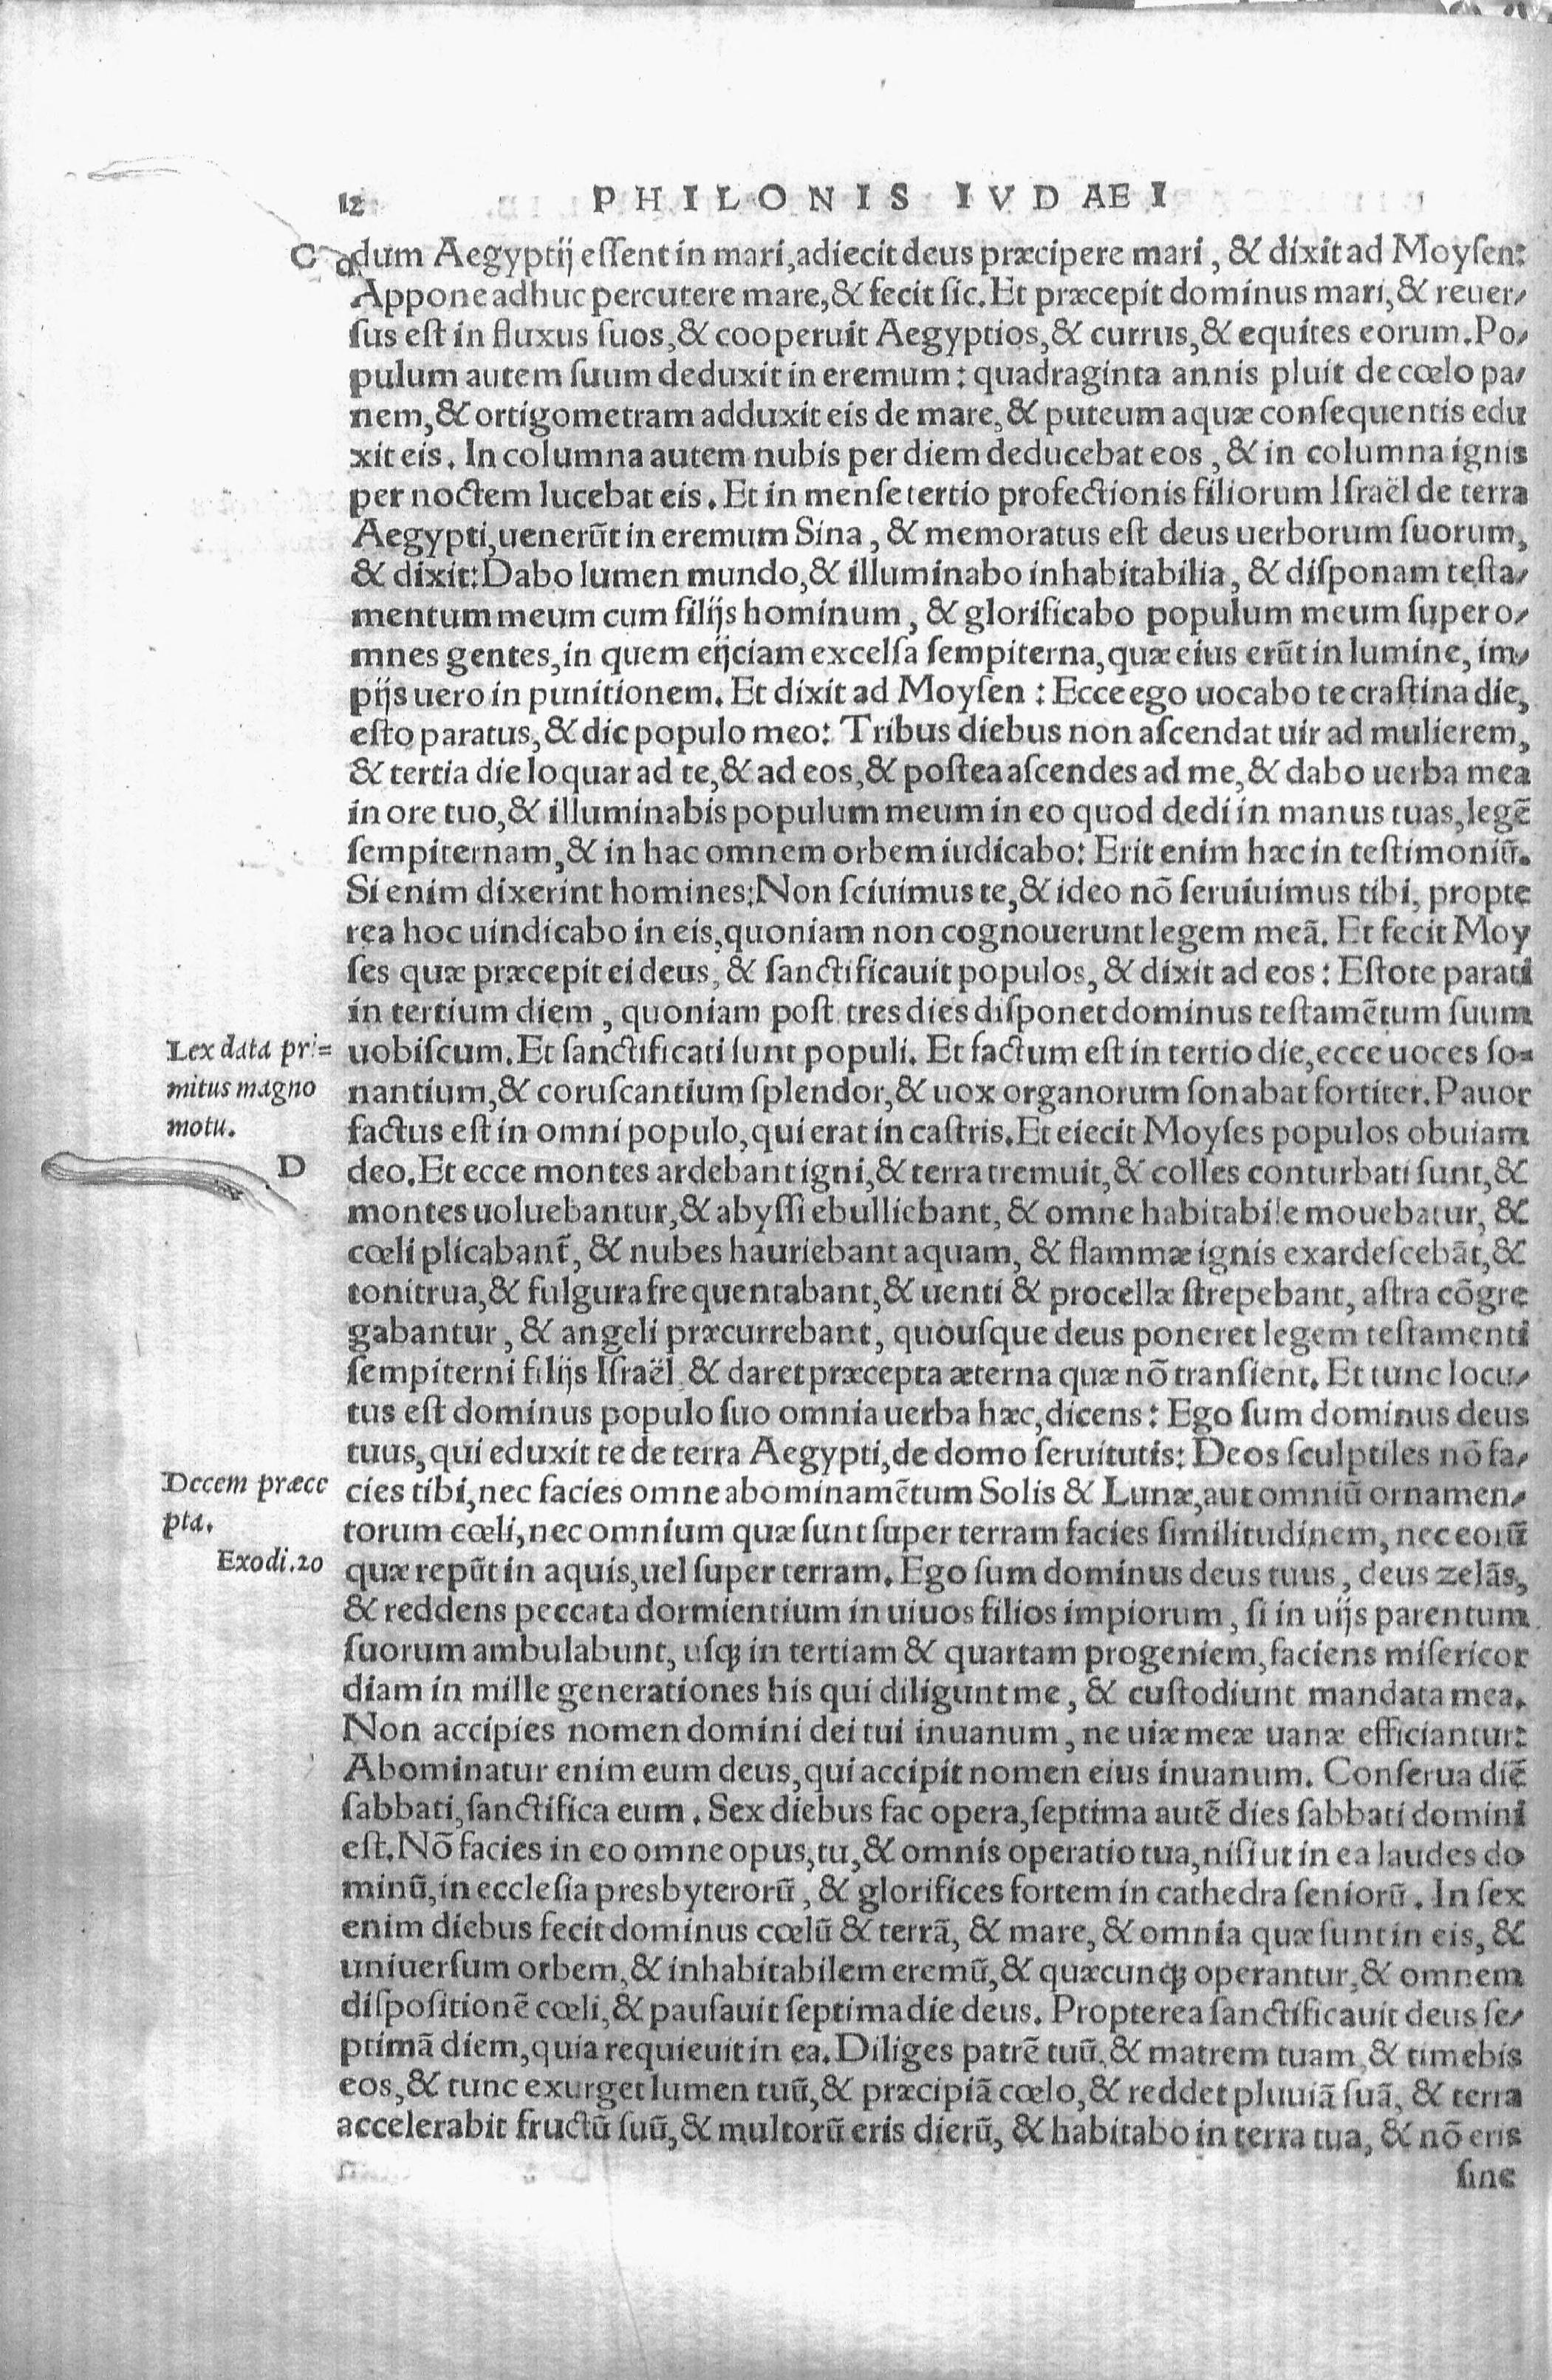 12 PHILONIS IVDAEI
C dum Aegyptij essent in mari, adiecit deus præcipere mari, & dixit ad Moysen:
Appone adhuc percutere mare, & fecit sic. Et præcepit dominus mari, & reuer⸗
sus est in fluxus suos, & cooperuit Aegyptios, & currus, & equites eorum. Po⸗
pulum autem suum deduxit in eremum: quadraginta annis pluit de cœlo pa⸗
nem, & ortigometram adduxit eis de mare, & puteum aquæ consequentis edu
xit eis. In columna autem nubis per diem deducebat eos, & in columna ignis
per noctem lucebat eis. Et in mense tertio profectionis filiorum Israël de terra
Aegypti, uenerūt in eremum Sina, & memoratus est deus uerborum suorum,
& dixit: Dabo lumen mundo, & illuminabo inhabitabilia, & disponam testa⸗
mentum meum cum filijs hominum, & glorificabo populum meum super o⸗
mnes gentes, in quem eijciam excelsa sempiterna, quæ eius erūt in lumine, im⸗
pijs uero in punitionem. Et dixit ad Moysen: Ecce ego uocabo te crastina die,
esto paratus, & dic populo meo: Tribus diebus non ascendat uir ad mulierem,
& tertia die loquar ad te, & ad eos, & postea ascendes ad me, & dabo uerba mea
in ore tuo, & illuminabis populum meum in eo quod dedi in manus tuas, legē
sempiternam, & in hac omnem orbem iudicabo: Erit enim hæc in testimoniū.
Si enim dixerint homines: Non sciuimus te, & ideo nō seruiuimus tibi, propte
rea hoc uindicabo in eis, quoniam non cognouerunt legem meā. Et fecit Moy
ses quæ præcepit ei deus, & sanctificauit populos, & dixit ad eos: Estote parati
in tertium diem, quoniam post tres dies disponet dominus testamētum suum
Lex data pri=
mitus magno
motu.
uobiscum. Et sanctificati sunt populi. Et factum est in tertio die, ecce uoces so=
nantium, & coruscantium splendor, & uox organorum sonabat fortiter. Pauor
factus est in omni populo, qui erat in castris. Et eiecit Moyses populos obuiam
D deo. Et ecce montes ardebant igni, & terra tremuit, & colles conturbati sunt, &
montes uoluebantur, & abyssi ebulliebant, & omne habitabile mouebatur, &
cœli plicabant̄, & nubes hauriebant aquam, & flammæ ignis exardescebāt, &
tonitrua, & fulgura frequentabant, & uenti & procellæ strepebant, astra cōgre
gabantur, & angeli præcurrebant, quousque deus poneret legem testamenti
sempiterni filijs Israël, & daret præcepta æterna quæ nō transient. Et tunc locu⸗
tus est dominus populo suo omnia uerba hæc, dicens: Ego sum dominus deus
tuus, qui eduxit te de terra Aegypti, de domo seruitutis: Deos sculptiles nō fa⸗
Decem præce
pta.
Exodi.20
cies tibi, nec facies omne abominamētum Solis & Lunæ, aut omniū ornamen⸗
torum cœli, nec omnium quæ sunt super terram facies similitudinem, nec eorū
quæ repūt in aquis, uel super terram. Ego sum dominus deus tuus, deus zelās,
& reddens peccata dormientium in uiuos filios impiorum, si in uijs parentum
suorum ambulabunt, usqꝫ in tertiam & quartam progeniem, faciens misericor
diam in mille generationes his qui diligunt me, & custodiunt mandata mea.
Non accipies nomen domini dei tui inuanum, ne uiæ meæ uanæ efficiantur:
Abominatur enim eum deus, qui accipit nomen eius inuanum. Conserua diē
sabbati, sanctifica eum. Sex diebus fac opera, septima autē dies sabbati domini
est. Nō facies in eo omne opus, tu, & omnis operatio tua, nisi ut in ea laudes do
minū, in ecclesia presbyterorū, & glorifices fortem in cathedra seniorū. In sex
enim diebus fecit dominus cœlū & terrā, & mare, & omnia quæ sunt in eis, &
uniuersum orbem, & inhabitabilem eremū, & quæcunqꝫ operantur, & omnem
dispositionē cœli, & pausauit septima die deus. Propterea sanctificauit deus se⸗
ptimā diem, quia requieuit in ea. Diliges patrē tuū, & matrem tuam, & timebis
eos, & tunc exurget lumen tuū, & præcipiā cœlo, & reddet pluuiā suā, & terra
accelerabit fructū suū, & multorū eris dierū, & habitabo in terra tua, & nō eris
sine